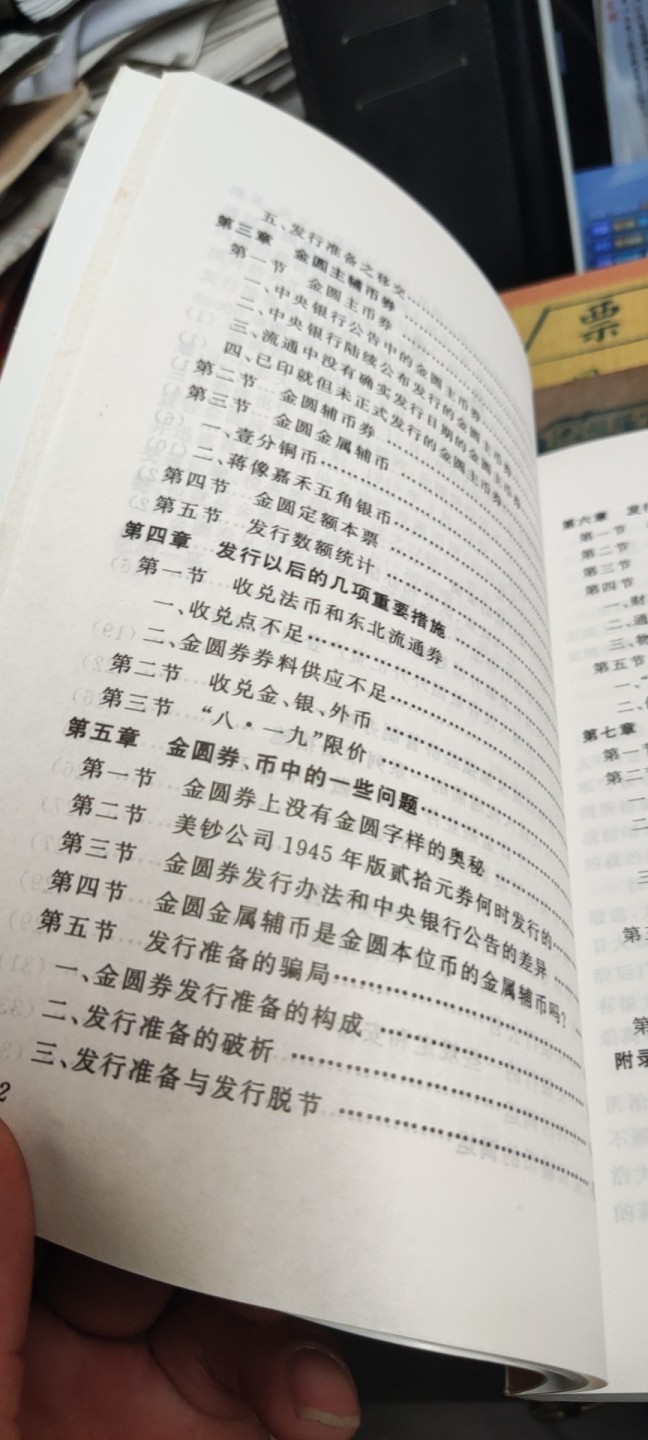 五、发行准备之移交……
第三章 金圆主辅币券……
第一节 金圆主币券……
一、中央银行公告中的金圆主币券……
二、中央银行陆续公布发行的金圆主币券……
三、流通中没有确实发行日期的金圆主币券……
四、已印就但未正式发行的金圆主币券……
第二节 金圆辅币券……
第三节 金圆金属辅币……
一、壹分铜币……
二、蒋像嘉禾五角银币……
第四节 金圆定额本票……
第五节 发行数额统计……
第四章 发行以后的几项重要措施……
第一节 收兑法币和东北流通券……
一、收兑点不足……
二、金圆券券料供应不足……
第二节 收兑金、银、外币……
第三节 “八·一九”限价……
第五章 金圆券、币中的一些问题……
第一节 金圆券上没有金圆字样的奥秘……
第二节 美钞公司1945年版贰拾元券何时发行的……
第三节 金圆券发行办法和中央银行公告的差异……
第四节 金圆金属辅币是金圆本位币的金属辅币吗?……
第五节 发行准备的骗局……
一、金圆券发行准备的构成……
二、发行准备的破析……
三、发行准备与发行脱节……
2
票
第六章 发
第一节
第二节
第三节
第四节
一、财
二、通
三、物
第五节
一、
二、
第七章
第一节
第二节
一
二
三
第三
第
附录